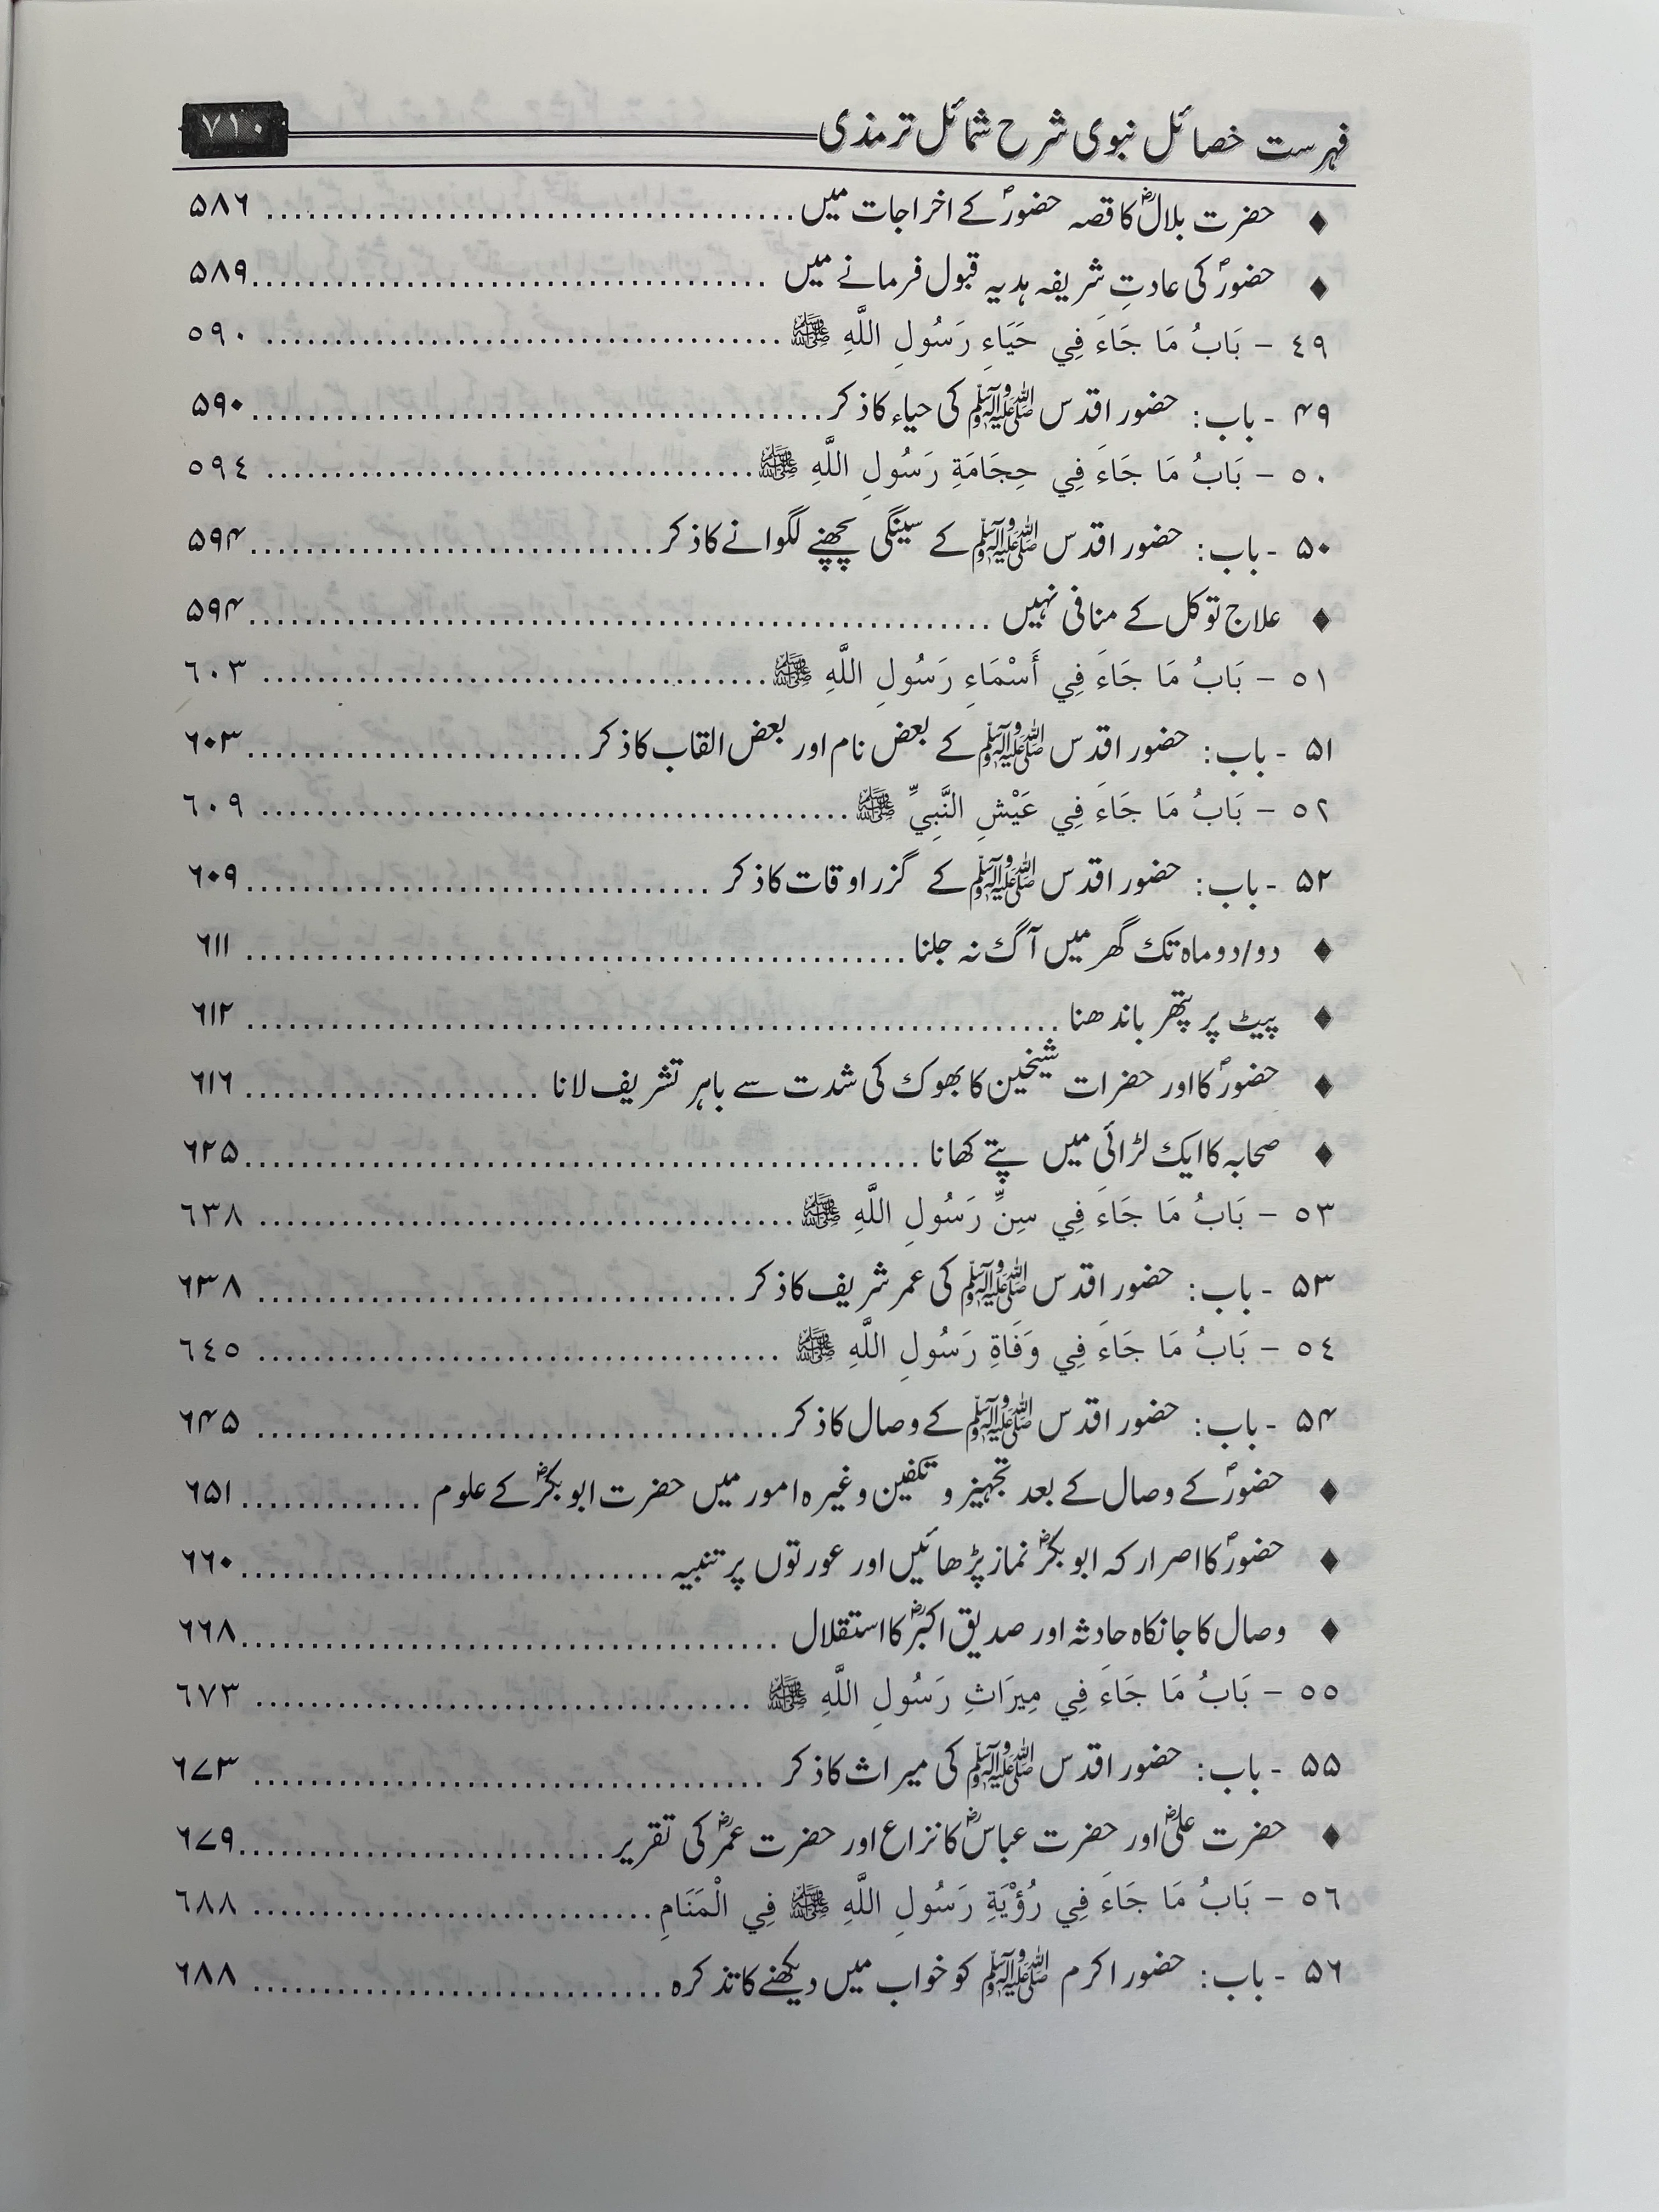 فہرست خصائل نبوی شرح شمائل ترمذی ٧١٠
♦ حضرت بلالؓ کا قصہ حضورؐ کے اخراجات میں ۵۸۶
♦ حضورؐ کی عادتِ شریفہ ہدیہ قبول فرمانے میں ۵۸۹
٤٩ – بَابُ مَا جَاءَ فِي حَيَاءِ رَسُولِ اللَّهِ ﷺ ٥٩٠
۴۹ - باب: حضور اقدس ﷺ کی حیاء کا ذکر ۵۹۰
٥٠ – بَابُ مَا جَاءَ فِي حِجَامَةِ رَسُولِ اللَّهِ ﷺ ٥٩٤
۵۰ - باب: حضور اقدس ﷺ کے سینگی پچھنے لگوانے کا ذکر ۵۹۴
♦ علاج توکل کے منافی نہیں ۵۹۴
٥١ – بَابُ مَا جَاءَ فِي أَسْمَاءِ رَسُولِ اللَّهِ ﷺ ٦٠٣
۵۱ - باب: حضور اقدس ﷺ کے بعض نام اور بعض القاب کا ذکر ۶۰۳
٥٢ – بَابُ مَا جَاءَ فِي عَيْشِ النَّبِيِّ ﷺ ٦٠٩
۵۲ - باب: حضور اقدس ﷺ کے گزر اوقات کا ذکر ۶۰۹
♦ دو/دو ماہ تک گھر میں آگ نہ جلنا ۶۱۱
♦ پیٹ پر پتھر باندھنا ۶۱۲
♦ حضورؐ کا اور حضرات شیخین کا بھوک کی شدت سے باہر تشریف لانا ۶۱۶
♦ صحابہ کا ایک لڑائی میں پتے کھانا ۶۲۵
٥٣ – بَابُ مَا جَاءَ فِي سِنِّ رَسُولِ اللَّهِ ﷺ ٦٣٨
۵۳ - باب: حضور اقدس ﷺ کی عمر شریف کا ذکر ۶۳۸
٥٤ – بَابُ مَا جَاءَ فِي وَفَاةِ رَسُولِ اللَّهِ ﷺ ٦٤٥
۵۴ - باب: حضور اقدس ﷺ کے وصال کا ذکر ۶۴۵
♦ حضورؐ کے وصال کے بعد تجہیز و تکفین وغیرہ امور میں حضرت ابوبکرؓ کے علوم ۶۵۱
♦ حضورؐ کا اصرار کہ ابوبکرؓ نماز پڑھائیں اور عورتوں پر تنبیہ ۶۶۰
♦ وصال کا جانکاہ حادثہ اور صدیق اکبرؓ کا استقلال ۶۶۸
٥٥ – بَابُ مَا جَاءَ فِي مِيرَاثِ رَسُولِ اللَّهِ ﷺ ٦٧٣
۵۵ - باب: حضور اقدس ﷺ کی میراث کا ذکر ۶۷۳
♦ حضرت علیؓ اور حضرت عباسؓ کا نزاع اور حضرت عمرؓ کی تقریر ۶۷۹
٥٦ – بَابُ مَا جَاءَ فِي رُؤْيَةِ رَسُولِ اللَّهِ ﷺ فِي الْمَنَامِ ٦٨٨
۵۶ - باب: حضور اکرم ﷺ کو خواب میں دیکھنے کا تذکرہ ۶۸۸